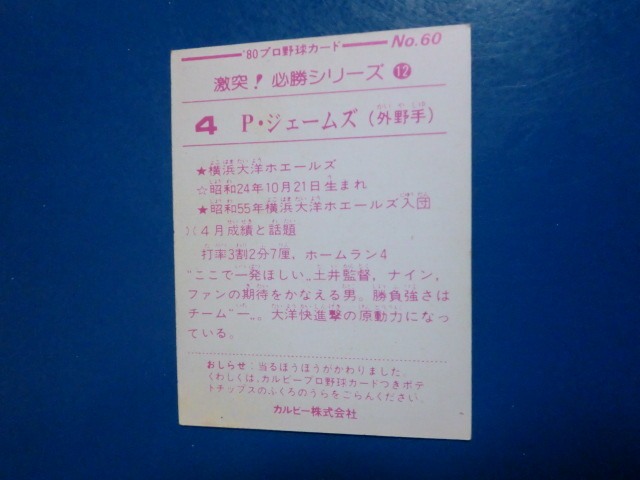 '80プロ野球カード No.60
激突！必勝シリーズ⑫
4 P・ジェームズ（外野手）
★横浜大洋ホエールズ
☆昭和24年10月21日生まれ
★昭和55年横浜大洋ホエールズ入団
4月成績と話題
打率3割2分7厘，ホームラン4
"ここで一発ほしい"土井監督，ナイン，
ファンの期待をかなえる男。勝負強さは
チーム"一"。大洋快進撃の原動力になっ
ている。
おしらせ：当るほうほうがかわりました。
くわしくは、カルビープロ野球カードつきポテ
トチップスのふくろのうらをごらんください。
カルビー株式会社